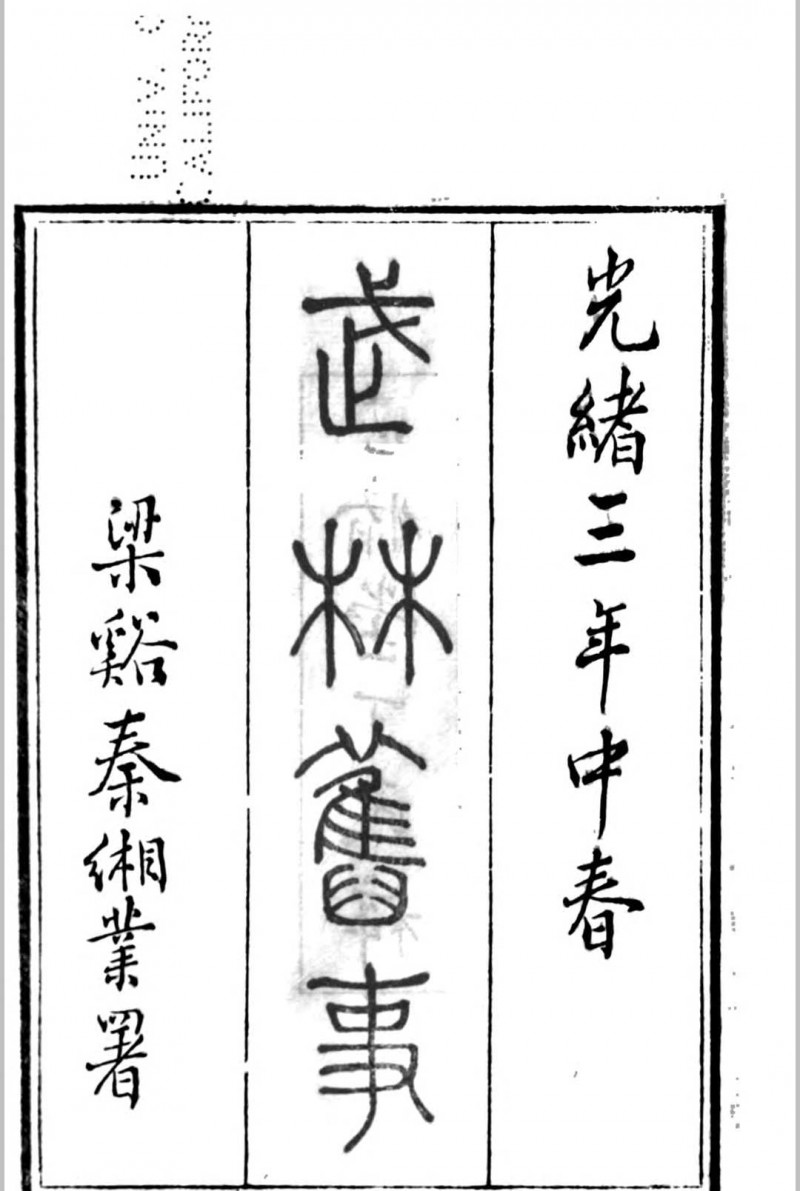 光緒三年中春
武林舊事
梁谿秦緗業署
UNIV. C
CALIFOR